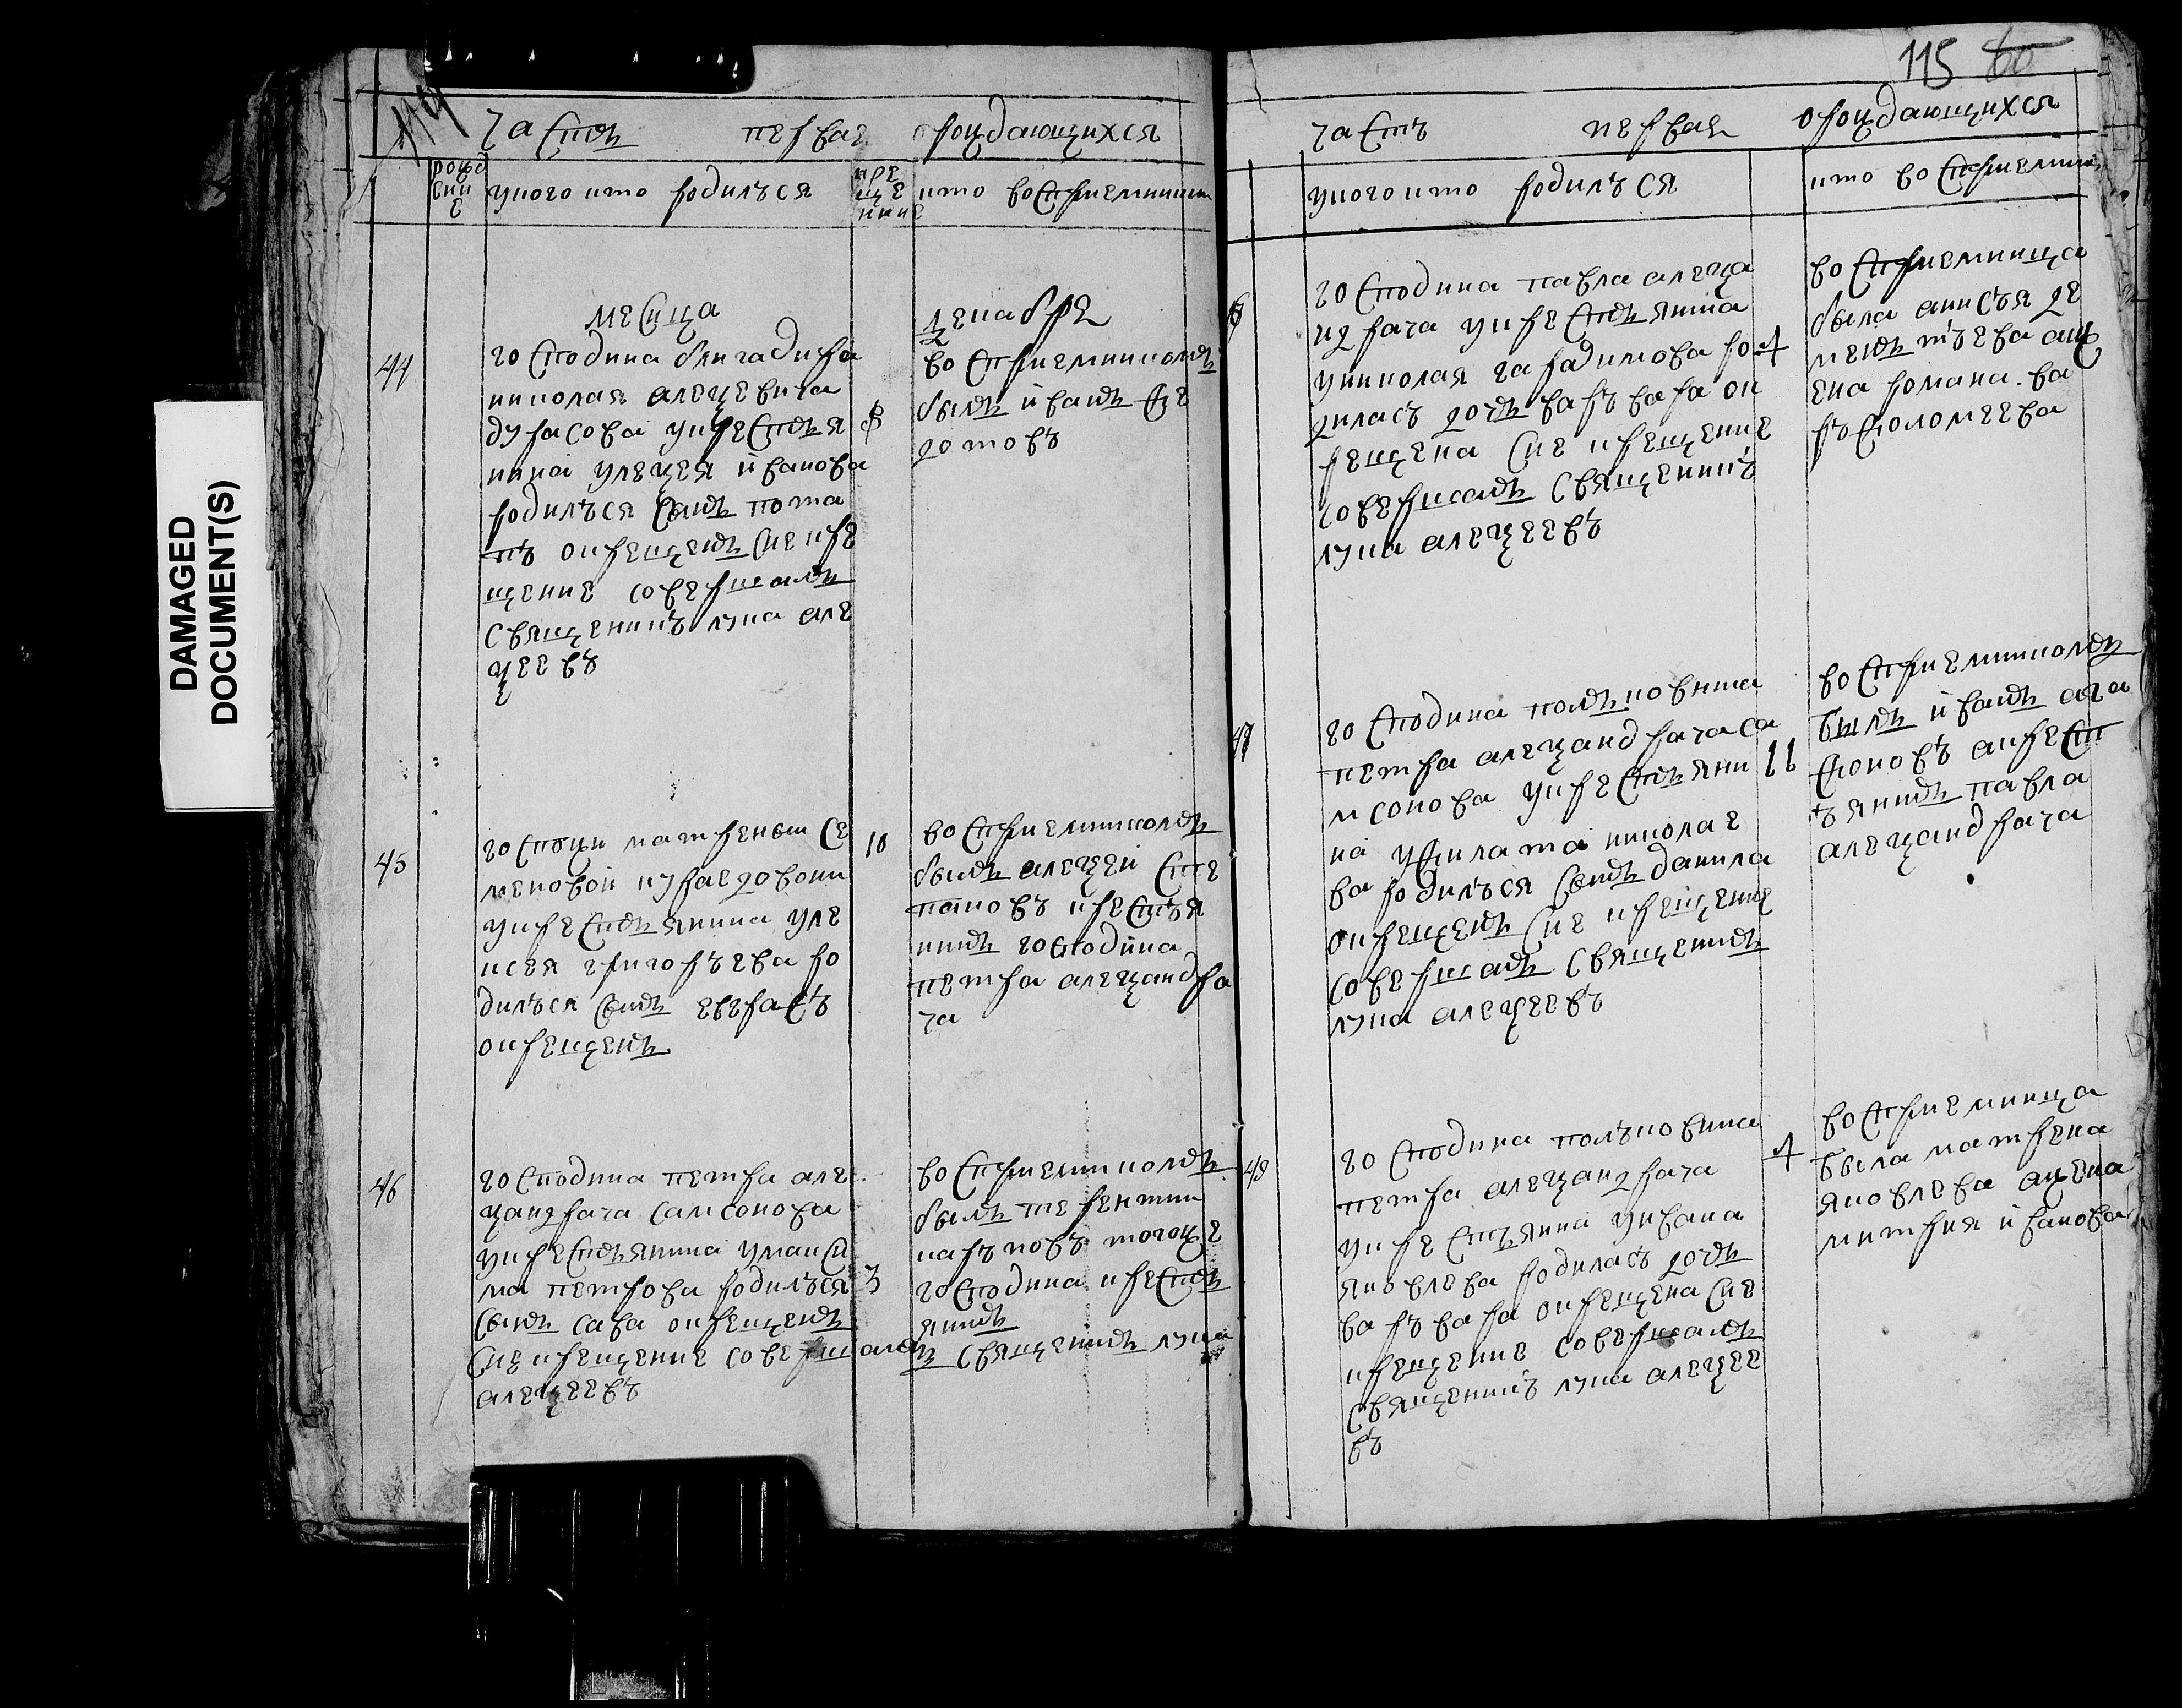 DAMAGED
DOCUMENT(S)
114
часть первая о рождающихся
рождение
у ного кто родилъся
крещение
кто восприемники
месица
декабре
44
господина бригадира
николая алеѯевича
дурасова у крестья
нина у леѯея ивано��а
родилъся сынъ пота
пъ окрещенъ сие кре
щение совершалъ
священникъ лука але
ѯеевъ
8
восприемникомъ
былъ иванъ фе
дотовъ
45
госпжи матрены се
меновой кураедовои
у крестьянина у ле
ксея григорьева ро
дилъся сынъ герасъ
окрещенъ
10
восприемникомъ
былъ алеѯей сте
пановъ крестья
нинъ господина
петра алеѯандра
ча
46
господина петра але
ѯандрача самсонова
у крестьянина у макси
ма петрова родилъся
сынъ сава окрещенъ
сие крещение совершалъ священникъ лука
алеѯеевъ
3
восприемникомъ
былъ терентии
карповъ тогоже
господина кресть
янинъ
115 60
часть первая о рождающихся
у ного кто родилъся
кто восприемники
господина павла алеѯа
ндрача у крестьянина
у николая гарадимова ро
дилась дочь варъвара ок
рещена сие крещение
совершалъ священникъ
лука алеѯеевъ
4
восприемница
была анисья де
ментьева анж
ена романа ва
ръфоломеева
господина полковника
петра алеѯандрача са
мсонова у крестьяни
на у филата никола��
ва родилъся сынъ данила
окрещенъ сие крещение
совершалъ священникъ
лука алеѯеевъ
11
восприемникомъ
былъ иванъ ага
фоновъ а крест
ьянинъ павла
алеѯандрача
49
господина полъковника
петра алеѯандрача
у крестьянина у ивана
яковлева родилась дочь
варъвара окрещена сие
крещение совершалъ
священникъ лука алеѯее
въ
4
восприемница
была матрена
яковлева ажена
митрия иванова